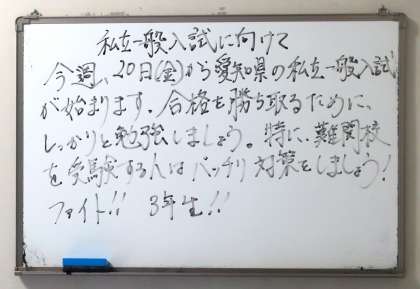 私立一般入試に向けて
今週、20日(金)から愛知県の私立一般入試
が始まります。合格を勝ち取るために、
しっかりと勉強しましょう。特に、難関校
を受験する人はバッチリ対策をしましょう!
ファイト!! 3年生!!